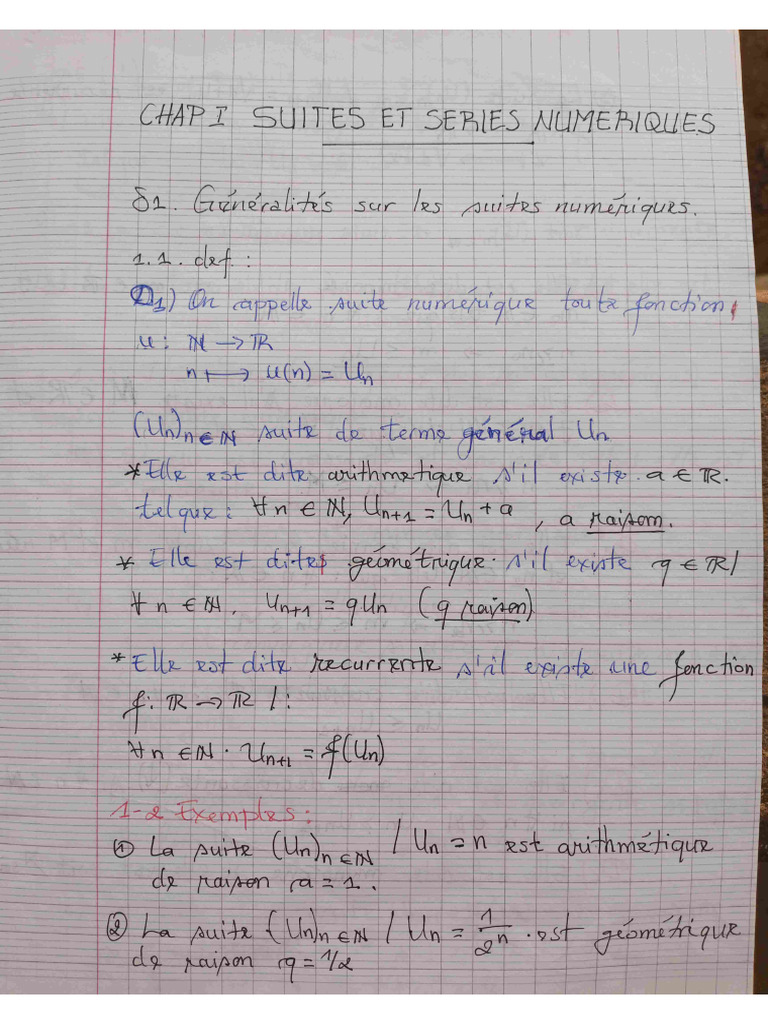 CHAP I SUITES ET SERIES NUMERIQUES
§1. Généralités sur les suites numériques.
1.1. def :
D1) On appelle suite numérique toute fonction,
u : ℕ → ℝ
n ⟼ u(n) = Un
(Un)n∈ℕ suite de terme général Un
*Elle est dite arithmetique s'il existe a ∈ ℝ.
tel que : ∀n ∈ ℕ, Un+1 = Un + a , a raison.
* Elle est dites géométrique s'il existe q ∈ ℝ/
∀ n ∈ ℕ. Un+1 = qUn (q raison)
* Elle est dite recurrente s'il existe une fonction
f : ℝ → ℝ / :
∀n ∈ ℕ . Un+1 = f(Un)
1-2 Exemples :
① La suite (Un)n∈ℕ / Un = n est arithmétique
de raison a = 1.
② La suite (Un)n∈ℕ / Un = 1/2ⁿ . est géométrique
de raison q = 1/2